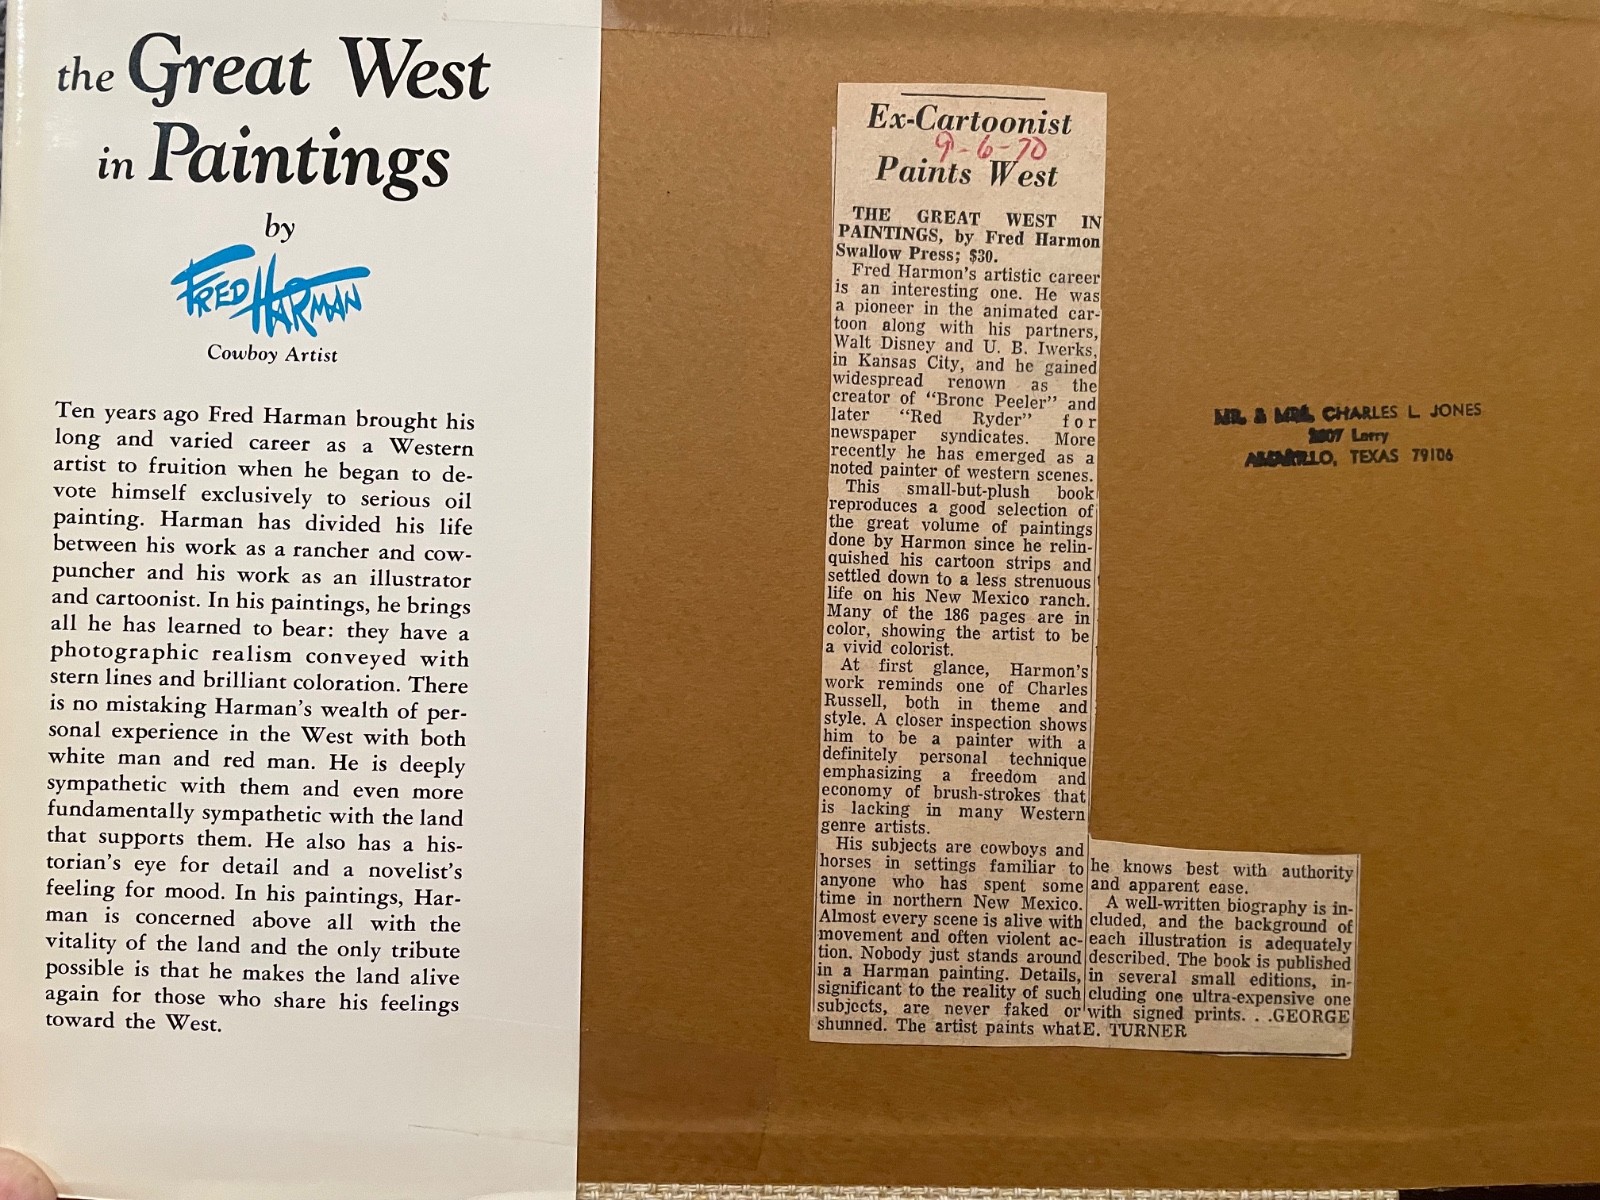 the Great West
in Paintings
by
FRED HARMAN
Cowboy Artist
Ten years ago Fred Harman brought his
long and varied career as a Western
artist to fruition when he began to de-
vote himself exclusively to serious oil
painting. Harman has divided his life
between his work as a rancher and cow-
puncher and his work as an illustrator
and cartoonist. In his paintings, he brings
all he has learned to bear: they have a
photographic realism conveyed with
stern lines and brilliant coloration. There
is no mistaking Harman's wealth of per-
sonal experience in the West with both
white man and red man. He is deeply
sympathetic with them and even more
fundamentally sympathetic with the land
that supports them. He also has a his-
torian's eye for detail and a novelist's
feeling for mood. In his paintings, Har-
man is concerned above all with the
vitality of the land and the only tribute
possible is that he makes the land alive
again for those who share his feelings
toward the West.
Ex-Cartoonist
9-6-70
Paints West
THE GREAT WEST IN
PAINTINGS, by Fred Harmon
Swallow Press; $30.
Fred Harmon's artistic career
is an interesting one. He was
a pioneer in the animated car-
toon along with his partners,
Walt Disney and U. B. Iwerks,
in Kansas City, and he gained
widespread renown as the
creator of "Bronc Peeler" and
later "Red Ryder" for
newspaper syndicates. More
recently he has emerged as a
noted painter of western scenes.
This small-but-plush book
reproduces a good selection of
the great volume of paintings
done by Harmon since he relin-
quished his cartoon strips and
settled down to a less strenuous
life on his New Mexico ranch.
Many of the 186 pages are in
color, showing the artist to be
a vivid colorist.
At first glance, Harmon's
work reminds one of Charles
Russell, both in theme and
style. A closer inspection shows
him to be a painter with a
definitely personal technique
emphasizing a freedom and
economy of brush-strokes that
is lacking in many Western
genre artists.
His subjects are cowboys and
horses in settings familiar to
anyone who has spent some
time in northern New Mexico.
Almost every scene is alive with
movement and often violent ac-
tion. Nobody just stands around
in a Harman painting. Details,
significant to the reality of such
subjects, are never faked or
shunned. The artist paints what
he knows best with authority
and apparent ease.
A well-written biography is in-
cluded, and the background of
each illustration is adequately
described. The book is published
in several small editions, in-
cluding one ultra-expensive one
with signed prints. . .GEORGE
E. TURNER
MR. & MRS. CHARLES L. JONES
2807 Larry
AMARILLO, TEXAS 79106